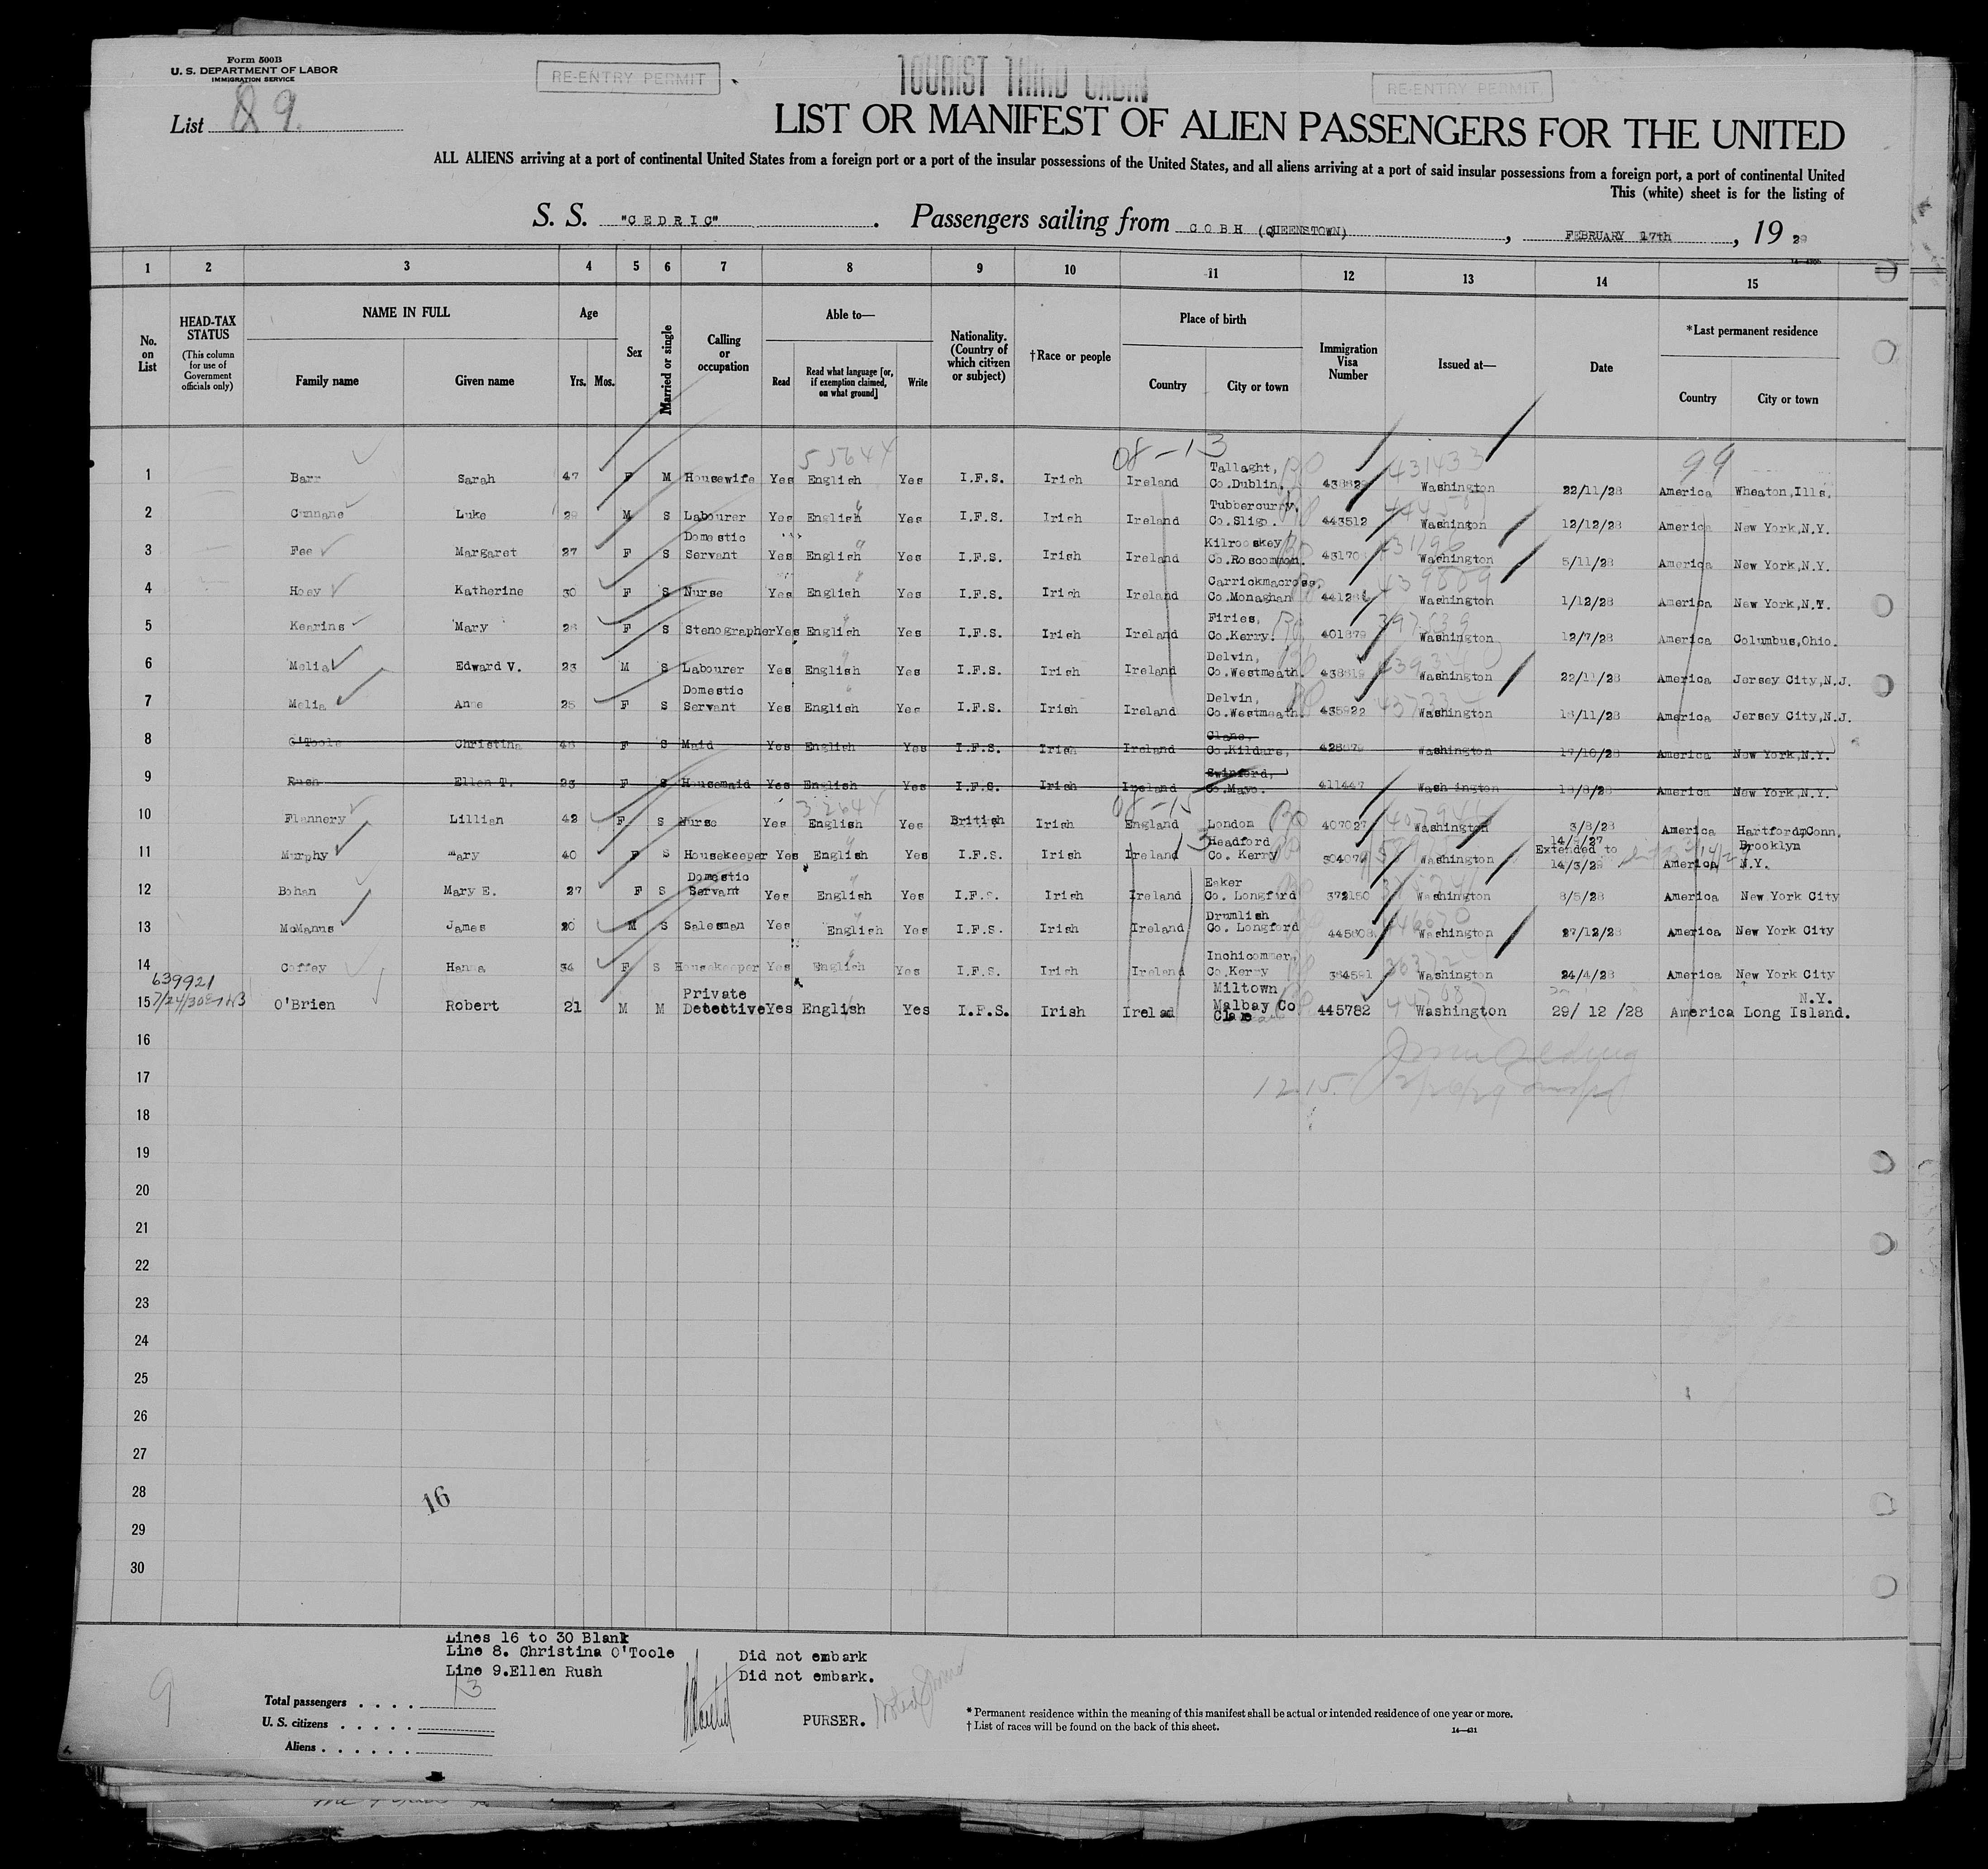 Form 500B
U. S. DEPARTMENT OF LABOR
IMMIGRATION SERVICE
RE-ENTRY PERMIT
TOURIST THIRD CABIN
RE-ENTRY PERMIT
List 9.
LIST OR MANIFEST OF ALIEN PASSENGERS FOR THE UNITED
ALL ALIENS arriving at a port of continental United States from a foreign port or a port of the insular possessions of the United States, and all aliens arriving at a port of said insular possessions from a foreign port, a port of continental United
This (white) sheet is for the listing of
S. S. "CEDRIC". Passengers sailing from COBH (QUEENSTOWN), FEBRUARY 17th, 19 29
1 2 3 4 5 6 7 8 9 10 11 12 13 14 15
No. on List
HEAD-TAX STATUS
(This column for use of Government officials only)
NAME IN FULL
Family name Given name
Age
Yrs. Mos.
Sex
Married or single
Calling or occupation
Able to—
Read
Read what language [or, if exemption claimed, on what ground]
Write
Nationality. (Country of which citizen or subject)
†Race or people
Place of birth
Country City or town
Immigration Visa Number
Issued at—
Date
*Last permanent residence
Country City or town
55644 08-13 431433 99
1 Barr Sarah 47 F M Housewife Yes English Yes I.F.S. Irish Ireland Tallaght, Co.Dublin. Washington 22/11/28 America Wheaton,Ills,
2 Cunnane Luke 29 M S Labourer Yes English Yes I.F.S. Irish Ireland Tubbercurry, Co.Sligo. 443512 Washington 12/12/28 America New York,N.Y.
3 Fee Margaret 27 F S Domestic Servant Yes English Yes I.F.S. Irish Ireland Kilrooskey Co.Roscommon. Washington 5/11/28 America New York,N.Y.
4 Hoey Katherine 30 F S Nurse Yes English Yes I.F.S. Irish Ireland Carrickmacross, Co.Monaghan Washington 1/12/28 America New York,N.Y.
5 Kearins Mary 26 F S Stenographer Yes English Yes I.F.S. Irish Ireland Firies, Co.Kerry. 401879 Washington 12/7/28 America Columbus,Ohio.
6 Melia Edward V. 23 M S Labourer Yes English Yes I.F.S. Irish Ireland Delvin, Co.Westmeath. 438819 Washington 22/11/28 America Jersey City,N.J.
7 Melia Anne 25 F S Domestic Servant Yes English Yes I.F.S. Irish Ireland Delvin, Co.Westmeath. 435922 Washington 16/11/28 America Jersey City,N.J.
8 O'Toole Christina 46 F S Maid Yes English Yes I.F.S. Irish Ireland Clane, Co.Kildare, Washington 17/10/28 America New York,N.Y.
9 Rush Ellen T. 23 F S Housemaid Yes English Yes I.F.S. Irish Ireland Swinford, Co.Mayo. 411447 Washington 18/8/28 America New York,N.Y.
08-15
10 Flannery Lillian 42 F S Nurse Yes English Yes British Irish England London 407027 Washington 3/8/28 America Hartford,Conn.
11 Murphy Mary 40 F S Housekeeper Yes English Yes I.F.S. Irish Ireland 13 Headford Co. Kerry Washington 14/9/27 Extended to 14/3/29 America Brooklyn N.Y.
12 Bohan Mary E. 27 F S Domestic Servant Yes English Yes I.F.S. Irish Ireland Esker Co. Longford 372150 Washington 8/5/28 America New York City
13 McManus James 20 M S Salesman Yes English Yes I.F.S. Irish Ireland Drumlish Co. Longford 445808 Washington 27/12/28 America New York City
14 Coffey Hanna 34 F S Housekeeper Yes English Yes I.F.S. Irish Ireland Co.Kerry 364591 Washington 24/4/28 America New York City
639921
15 7/24/30 O'Brien Robert 21 M M Private Detective Yes English Yes I.F.S. Irish Ireland Miltown Malbay Co Clare 445782 Washington 29/ 12 /28 America N.Y. Long Island.
16
17
1215. 2/26/29
18
19
20
21
22
23
24
25
26
27
28
16
29
30
Lines 16 to 30 Blank
Line 8. Christina O'Toole Did not embark
Line 9.Ellen Rush Did not embark.
9
Total passengers . . . . 13
U. S. citizens . . . . .
Aliens . . . . . .
PURSER.
* Permanent residence within the meaning of this manifest shall be actual or intended residence of one year or more.
† List of races will be found on the back of this sheet.
14—431